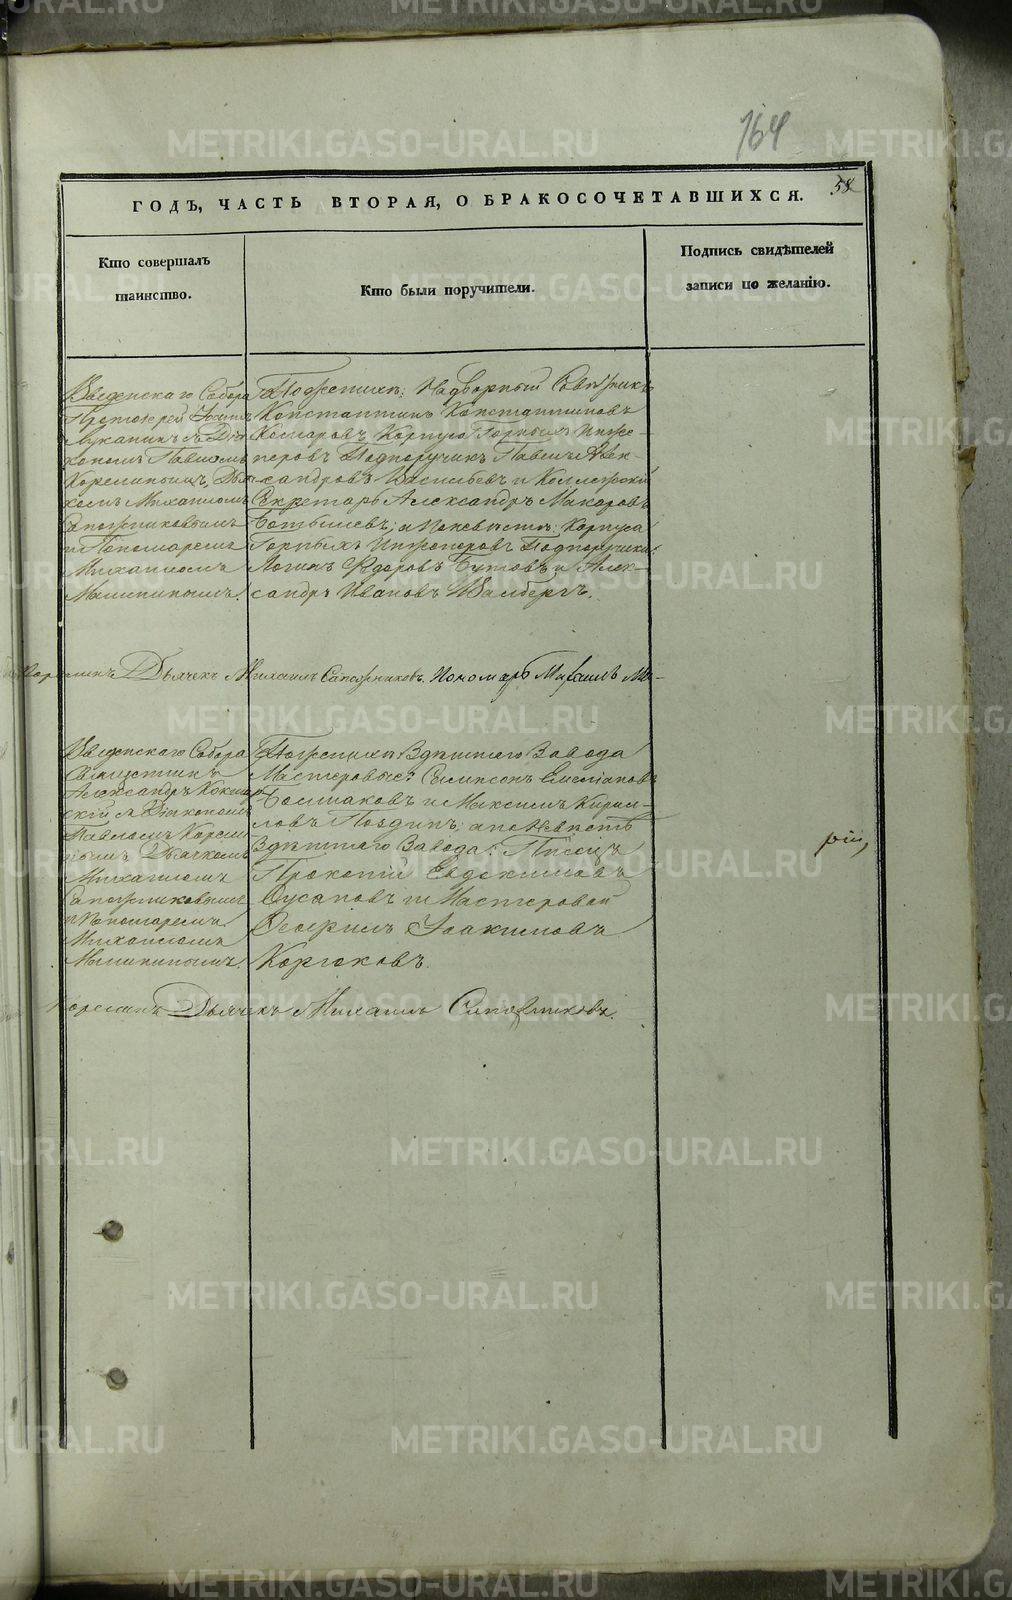 164
58
ГОДЪ, ЧАСТЬ ВТОРАЯ, О БРАКОСОЧЕТАВШИХСЯ.
Кто совершалъ
таинство.
Кто были поручители.
Подпись свидѣтелей
записи по желанію.
Введенскаго Собора
Протоіерей Іоаннъ
Луканинъ съ Діа-
кономъ Павломъ
Корелинымъ, Дья-
комъ Михаиломъ
Сапожниковымъ
и Пономаремъ
Михаиломъ
Малининымъ.
По женихѣ: Надворный Совѣтникъ
Константинъ Константиновъ
Комаровъ, Корпуса Горныхъ Инже-
неровъ Подпоручикъ Павелъ Алек-
сандровъ и Коллежскій
Секретарь Александръ Макаровъ
а по невѣстѣ: Корпуса
Горныхъ Инженеровъ Подпоручики:
Логинъ Ѳедоровъ Бутовъ и Алек-
сандръ Ивановъ
Корелинъ Дьячекъ Михаилъ Сапожниковъ. Пономарь Михаилъ Ма-
Введенскаго Собора
Священникъ
Александръ
скій съ Діакономъ
Павломъ Корели-
нымъ Дьячкомъ
Михаиломъ
Сапожниковымъ
и Пономаремъ
Михаиломъ
Малининымъ.
По женихѣ: Здѣшняго Завода
Мастеровые: Самсонъ Емельяновъ
Большаковъ и Максимъ Кирил-
ловъ а по невѣстѣ
Здѣшняго Завода: Писецъ
Прокопій Евдокимовъ
Сусановъ и Мастеровой
Іоакимовъ
Корелинъ Дьячекъ Михаилъ Сапожниковъ.
рій,
METRIKI.GASO-URAL.RU